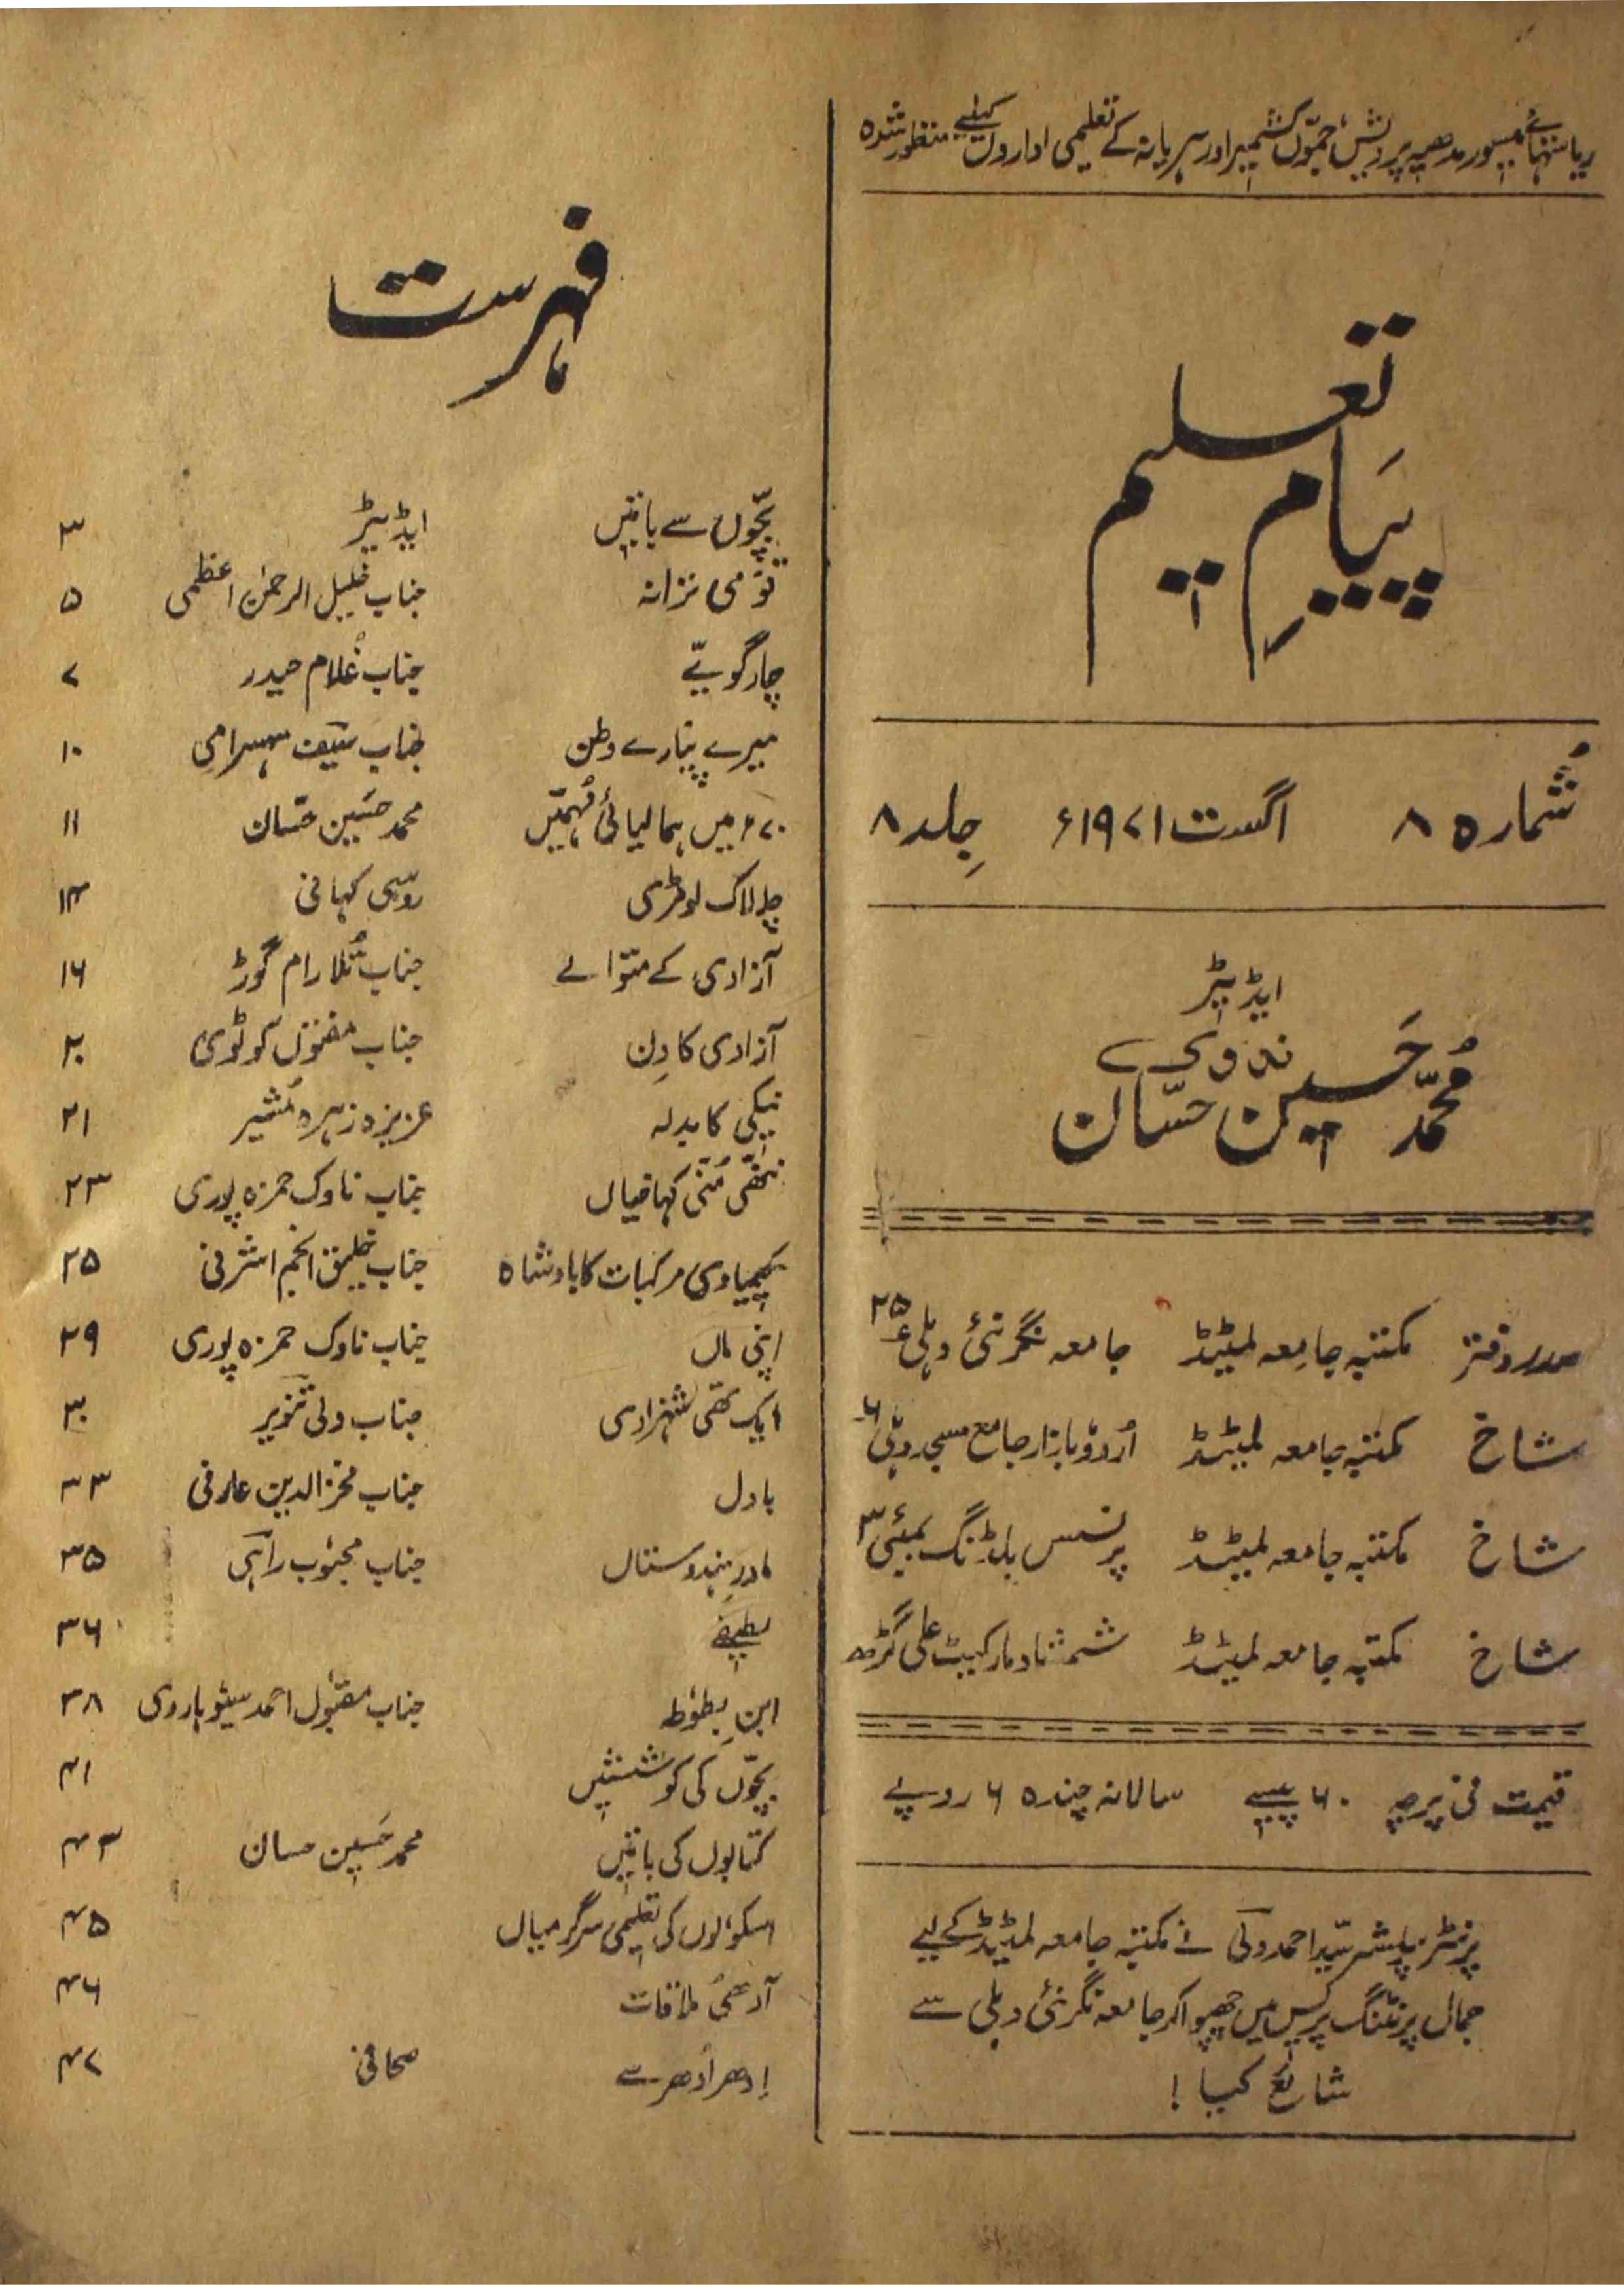 ریاستہائے میسور مدھیہ پردیش، جموں کشمیر اور ہریانہ کے تعلیمی اداروں کیلئے منظور شدہ
پیامِ تعلیم
شمارہ ۸ اگست ۱۹۷۱ء جِلد ۸
ایڈیٹر
محمّد حسین حسّان ندوی
صدر دفتر مکتبہ جامعہ لمیٹڈ جامعہ نگر نئی دہلی ۲۵
شاخ مکتبہ جامعہ لمیٹڈ اُردو بازار جامع مسجد دہلی ۶
شاخ مکتبہ جامعہ لمیٹڈ پرنسس بلڈنگ بمبئی ۳
شاخ مکتبہ جامعہ لمیٹڈ شمشاد مارکیٹ علی گڑھ
قیمت فی پرچہ ۶۰ پیسے سالانہ چندہ ۶ روپے
پرنٹر پبلشر سیّد احمد ولی نے مکتبہ جامعہ لمیٹڈ کے لیے
جمال پرنٹنگ پریس میں چھپوا کر جامعہ نگر نئی دہلی سے
شائع کیا !
فہرست
بچّوں سے باتیں ایڈیٹر ۳
قومی ترانہ جناب خلیل الرحمٰن اعظمی ۵
چار گویّے جناب غلام حیدر ۷
میرے پیارے وطن جناب سیف سہسرامی ۱۰
۷۰ء میں ہمالیائی مُہمیں محمد حسین حسّان ۱۱
چالاک لومڑی روسی کہانی ۱۴
آزادی کے متوالے جناب تُلا رام گوڑ ۱۶
آزادی کا دِن جناب مفتوں کوٹوی ۲۰
نیکی کا بدلہ عزیزہ زہرہ مُشیر ۲۱
ننھّی مُنّی کہانیاں جناب ناوک حمزہ پوری ۲۳
کیمیاوی مرکبات کا بادشاہ جناب خلیق انجم اشرفی ۲۵
اپنی ماں جناب ناوک حمزہ پوری ۲۹
ایک تھی شہزادی جناب ولی تنویر ۳۰
بادل جناب فخرالدین عارفی ۳۳
مادرِ ہندوستاں جناب محبُوب راہی ۳۵
لطیفے ۳۶
ابنِ بطوُطہ جناب مقبُول احمد سیوہاروی ۳۸
بچّوں کی کوششیں ۴۱
کتابوں کی باتیں محمد حَسین حسان ۴۳
اسکوُلوں کی تعلیمی سرگرمیاں ۴۵
آدھی ملاقات ۴۶
اِدھر اُدھر سے صحافی ۴۷